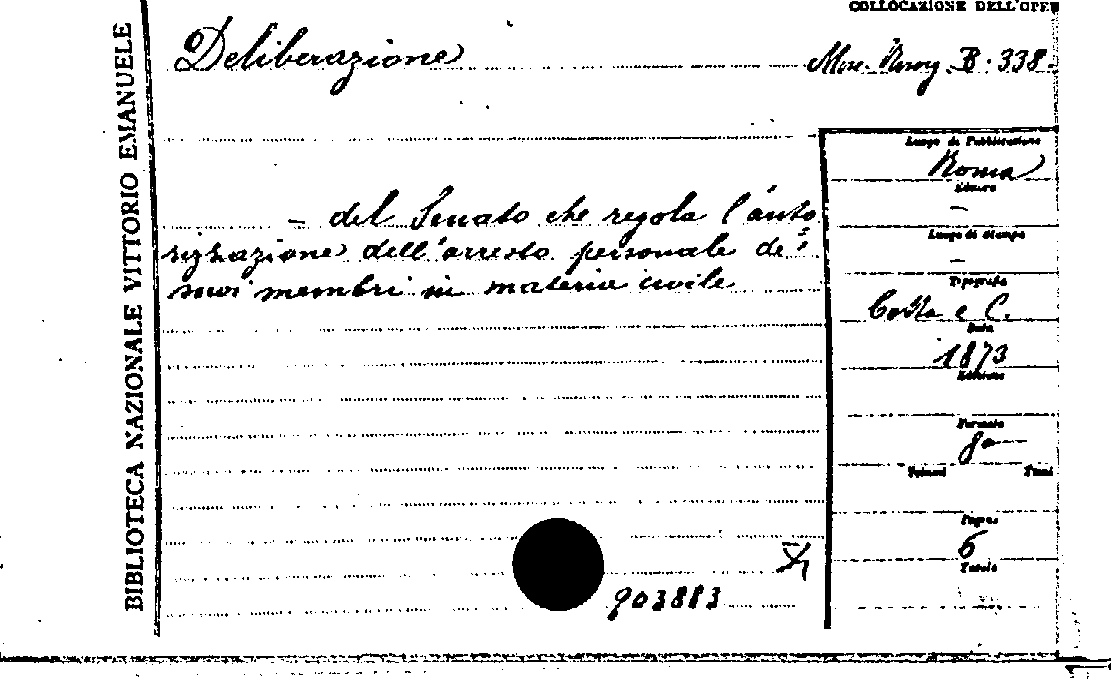 COLLOCAZIONE DELL'OPE
BIBLIOTECA NAZIONALE VITTORIO EMANUELE
Deliberazione
B. 338.
Luogo di Pubblicazione
Roma
Editore
–
– del Senato che regola l'auto
rizzazione dell'arresto personale de'
suoi membri in materia civile
Luogo di stampa
–
Tipografia
Cotta e C.
Data
1873
Edizione
Formato
8o
Volumi Tomi
Pagine
6
Tavole
903883